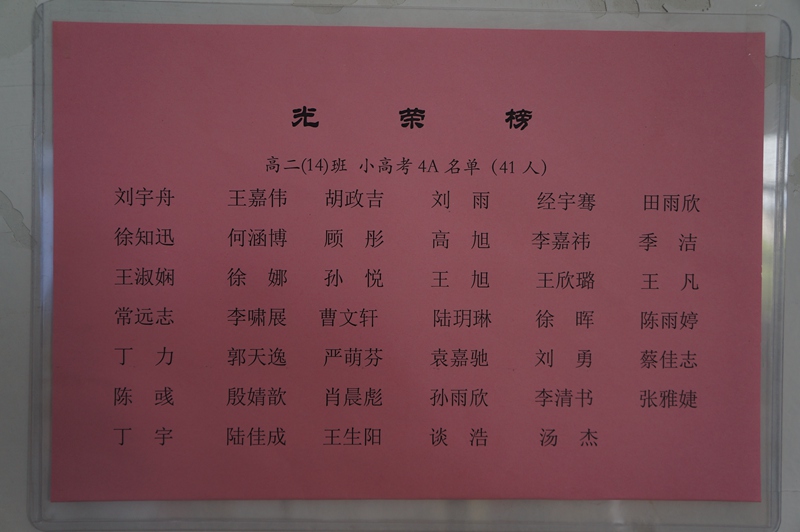 光 荣 榜
高二(14)班 小高考 4A 名单（41 人）
刘宇舟 王嘉伟 胡政吉 刘 雨 经宇骞 田雨欣
徐知迅 何涵博 顾 彤 高 旭 李嘉祎 季 洁
王淑娴 徐 娜 孙 悦 王 旭 王欣璐 王 凡
常远志 李啸展 曹文轩 陆玥琳 徐 晖 陈雨婷
丁 力 郭天逸 严萌芬 袁嘉驰 刘 勇 蔡佳志
陈 彧 殷婧歆 肖晨彪 孙雨欣 李清书 张雅婕
丁 宇 陆佳成 王生阳 谈 浩 汤 杰